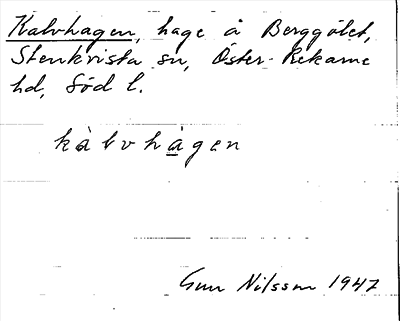 Kalvhagen, hage å Berggölet,
Stenkvista sn, Öster-Rekarne
hd, Söd l.
kàlvhàgen
Gun Nilsson 1947